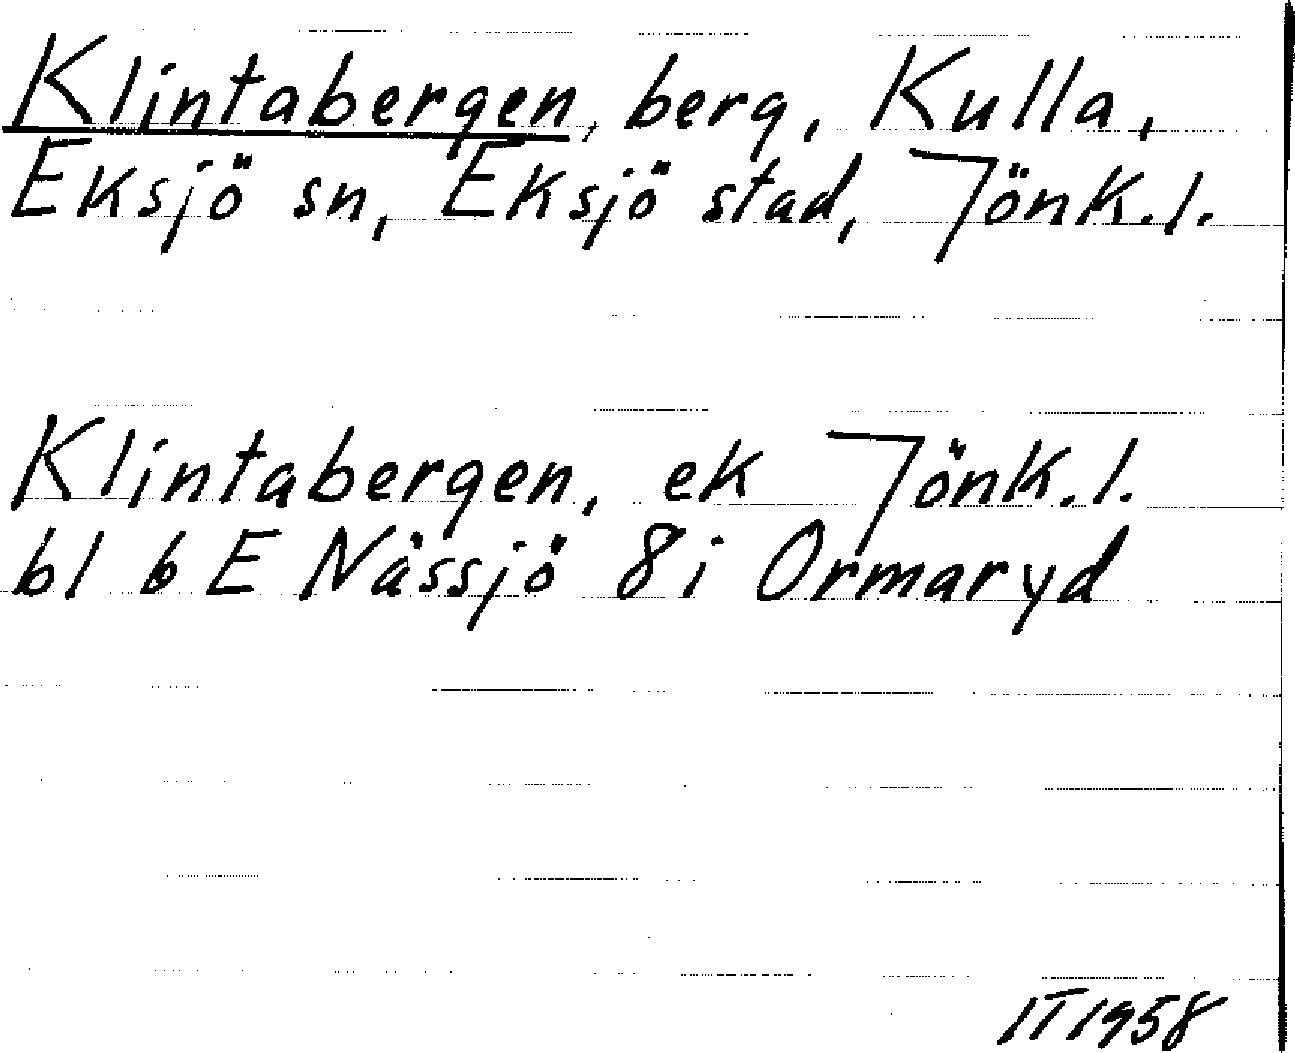 Klintabergen, berg, Kulla,
Eksjö sn, Eksjö stad, Jönk.l.
Klintabergen, ek Jönk.l.
bl 6 E Nässjö 8 i Ormaryd
IT 1958